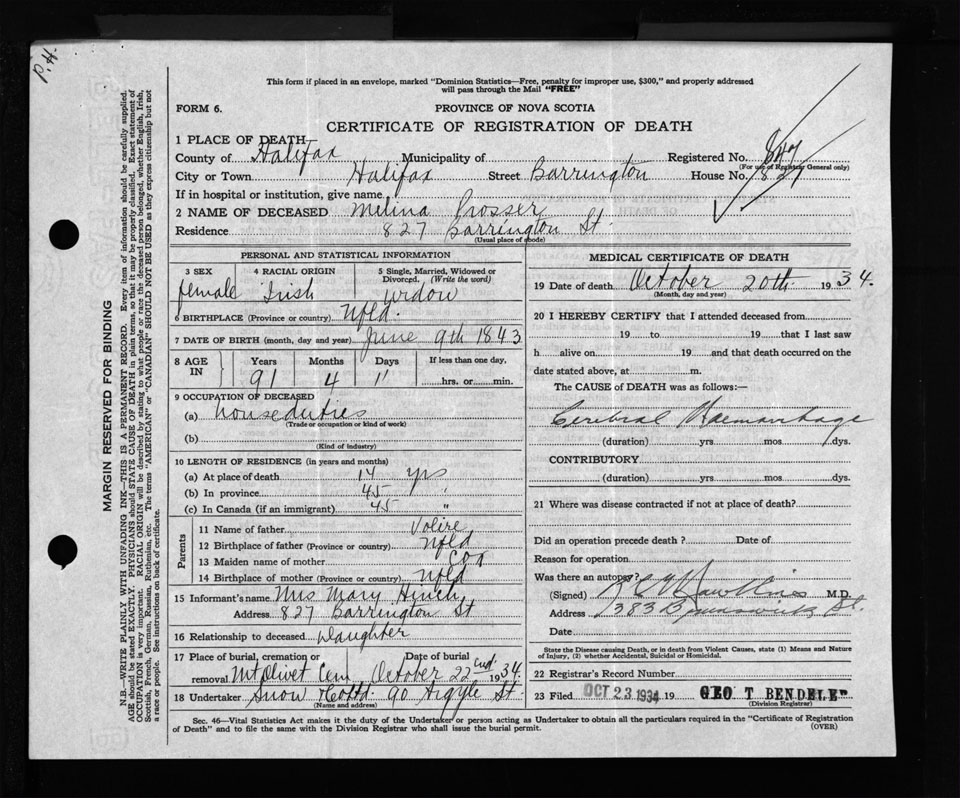 P.H.
This form if placed in an envelope, marked "Dominion Statistics—Free, penalty for improper use, $300," and properly addressed
will pass through the Mail "FREE"
FORM 6.
PROVINCE OF NOVA SCOTIA
CERTIFICATE OF REGISTRATION OF DEATH
1 PLACE OF DEATH
County of Halifax Municipality of Registered No. 847
(For use of Registrar General only)
City or Town Halifax Street Barrington House No. 827
If in hospital or institution, give name
2 NAME OF DECEASED Melina Prosser
Residence 827 Barrington St.
(Usual place of abode)
PERSONAL AND STATISTICAL INFORMATION
3 SEX 4 RACIAL ORIGIN 5 Single, Married, Widowed or
Divorced. (Write the word)
female Irish widow
6 BIRTHPLACE (Province or country) Nfld.
7 DATE OF BIRTH (month, day and year) June 9th 1843
8 AGE IN Years Months Days If less than one day,
91 4 11 hrs. or min.
9 OCCUPATION OF DECEASED
(a) housedu­ties
(Trade or occupation or kind of work)
(b)
(Kind of industry)
10 LENGTH OF RESIDENCE (in years and months)
(a) At place of death 14 yrs
(b) In province 45 "
(c) In Canada (if an immigrant) 45 "
Parents
11 Name of father Volire
12 Birthplace of father (Province or country) Nfld
13 Maiden name of mother Cox
14 Birthplace of mother (Province or country) Nfld
15 Informant's Name Mrs Mary Hinch
Address 827 Barrington St
16 Relationship to deceased Daughter
17 Place of burial, cremation or Date of burial
removal Mt Olivet Cem October 22nd 1934
18 Undertaker Snow & Co Ltd 90 Argyle St.
(Name and address)
MEDICAL CERTIFICATE OF DEATH
19 Date of death October 20th 1934.
(Month, day and year)
20 I HEREBY CERTIFY that I attended deceased from
19 to 19 that I last saw
h alive on 19 and that death occurred on the
date stated above, at m.
The CAUSE of DEATH was as follows:—
Cerebral Haemorrhage
(duration) yrs mos dys.
CONTRIBUTORY
(duration) yrs mos dys.
21 Where was disease contracted if not at place of death?
Did an operation precede death ? Date of
Reason for operation
Was there an autopsy?
(Signed) Hawkins M.D.
Address 383 Brunswick St.
Date
State the Disease causing Death, or in death from Violent Causes, state (1) Means and Nature
of Injury, (2) whether Accidental, Suicidal or Homicidal.
22 Registrar's Record Number
23 Filed OCT 23 1934 19 GEO T BENDELE
(Division Registrar)
Sec. 46—Vital Statistics Act makes it the duty of the Undertaker or person acting as Undertaker to obtain all the particulars required in the "Certificate of Registration
of Death" and to file the same with the Division Registrar who shall issue the burial permit. (OVER)
MARGIN RESERVED FOR BINDING
N.B.—WRITE PLAINLY WITH UNFADING INK—THIS IS A PERMANENT RECORD. Every item of information should be carefully supplied.
AGE should be stated EXACTLY. PHYSICIANS should STATE CAUSE OF DEATH in plain terms, so that it may be properly classified. Exact statement of
OCCUPATION is very important. RACIAL ORIGIN will be described by stating to what people or race the deceased person belonged, whether English, Irish,
Scottish, French, German, Russian, Ruthenian, etc. The terms "AMERICAN" or "CANADIAN" SHOULD NOT BE USED as they express citizenship but not
a race or people. See instructions on back of certificate.